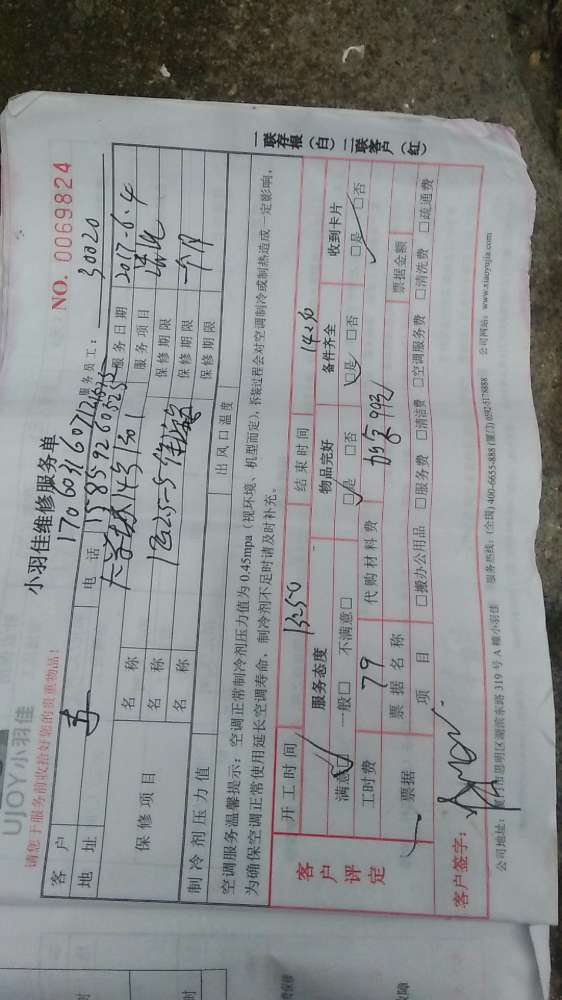 UJOY小羽佳
请您于服务前收拾好您的贵重物品!
小羽佳维修服务单
NO. 0069824
服务员工: 30020
客户
电话
地址
服务日期 2017.6.4
保修项目
名称
服务项目 清洗
名称
保修期限 一个月
名称
保修期限
保修期限
制冷剂压力值
出风口温度
空调服务温馨提示: 空调正常制冷剂压力值为0.45mpa(视环境、机型而定),拆装过程会对空调制冷或制热造成一定影响,
为确保空调正常使用延长空调寿命, 制冷剂不足时请及时补充。
客户评定
开工时间 13:50
结束时间 14:30
服务态度
物品完好
备件齐全
收到卡片
满意□ 一般□ 不满意□
□是 □否
□是 □否
□是 □否
工时费 79
代购材料费
票据
票据名称
票据金额
项目
□搬办公用品 □服务费 □清洁费 □空调服务费 □清洗费 □疏通费
客户签字:
公司地址: 厦门市思明区湖滨东路319号A幢小羽佳
服务热线: (全国) 400-6655-888 (厦门) 0592-5178888
公司网站: www.xiaoyujia.com
一联存根(白) 二联客户(红)